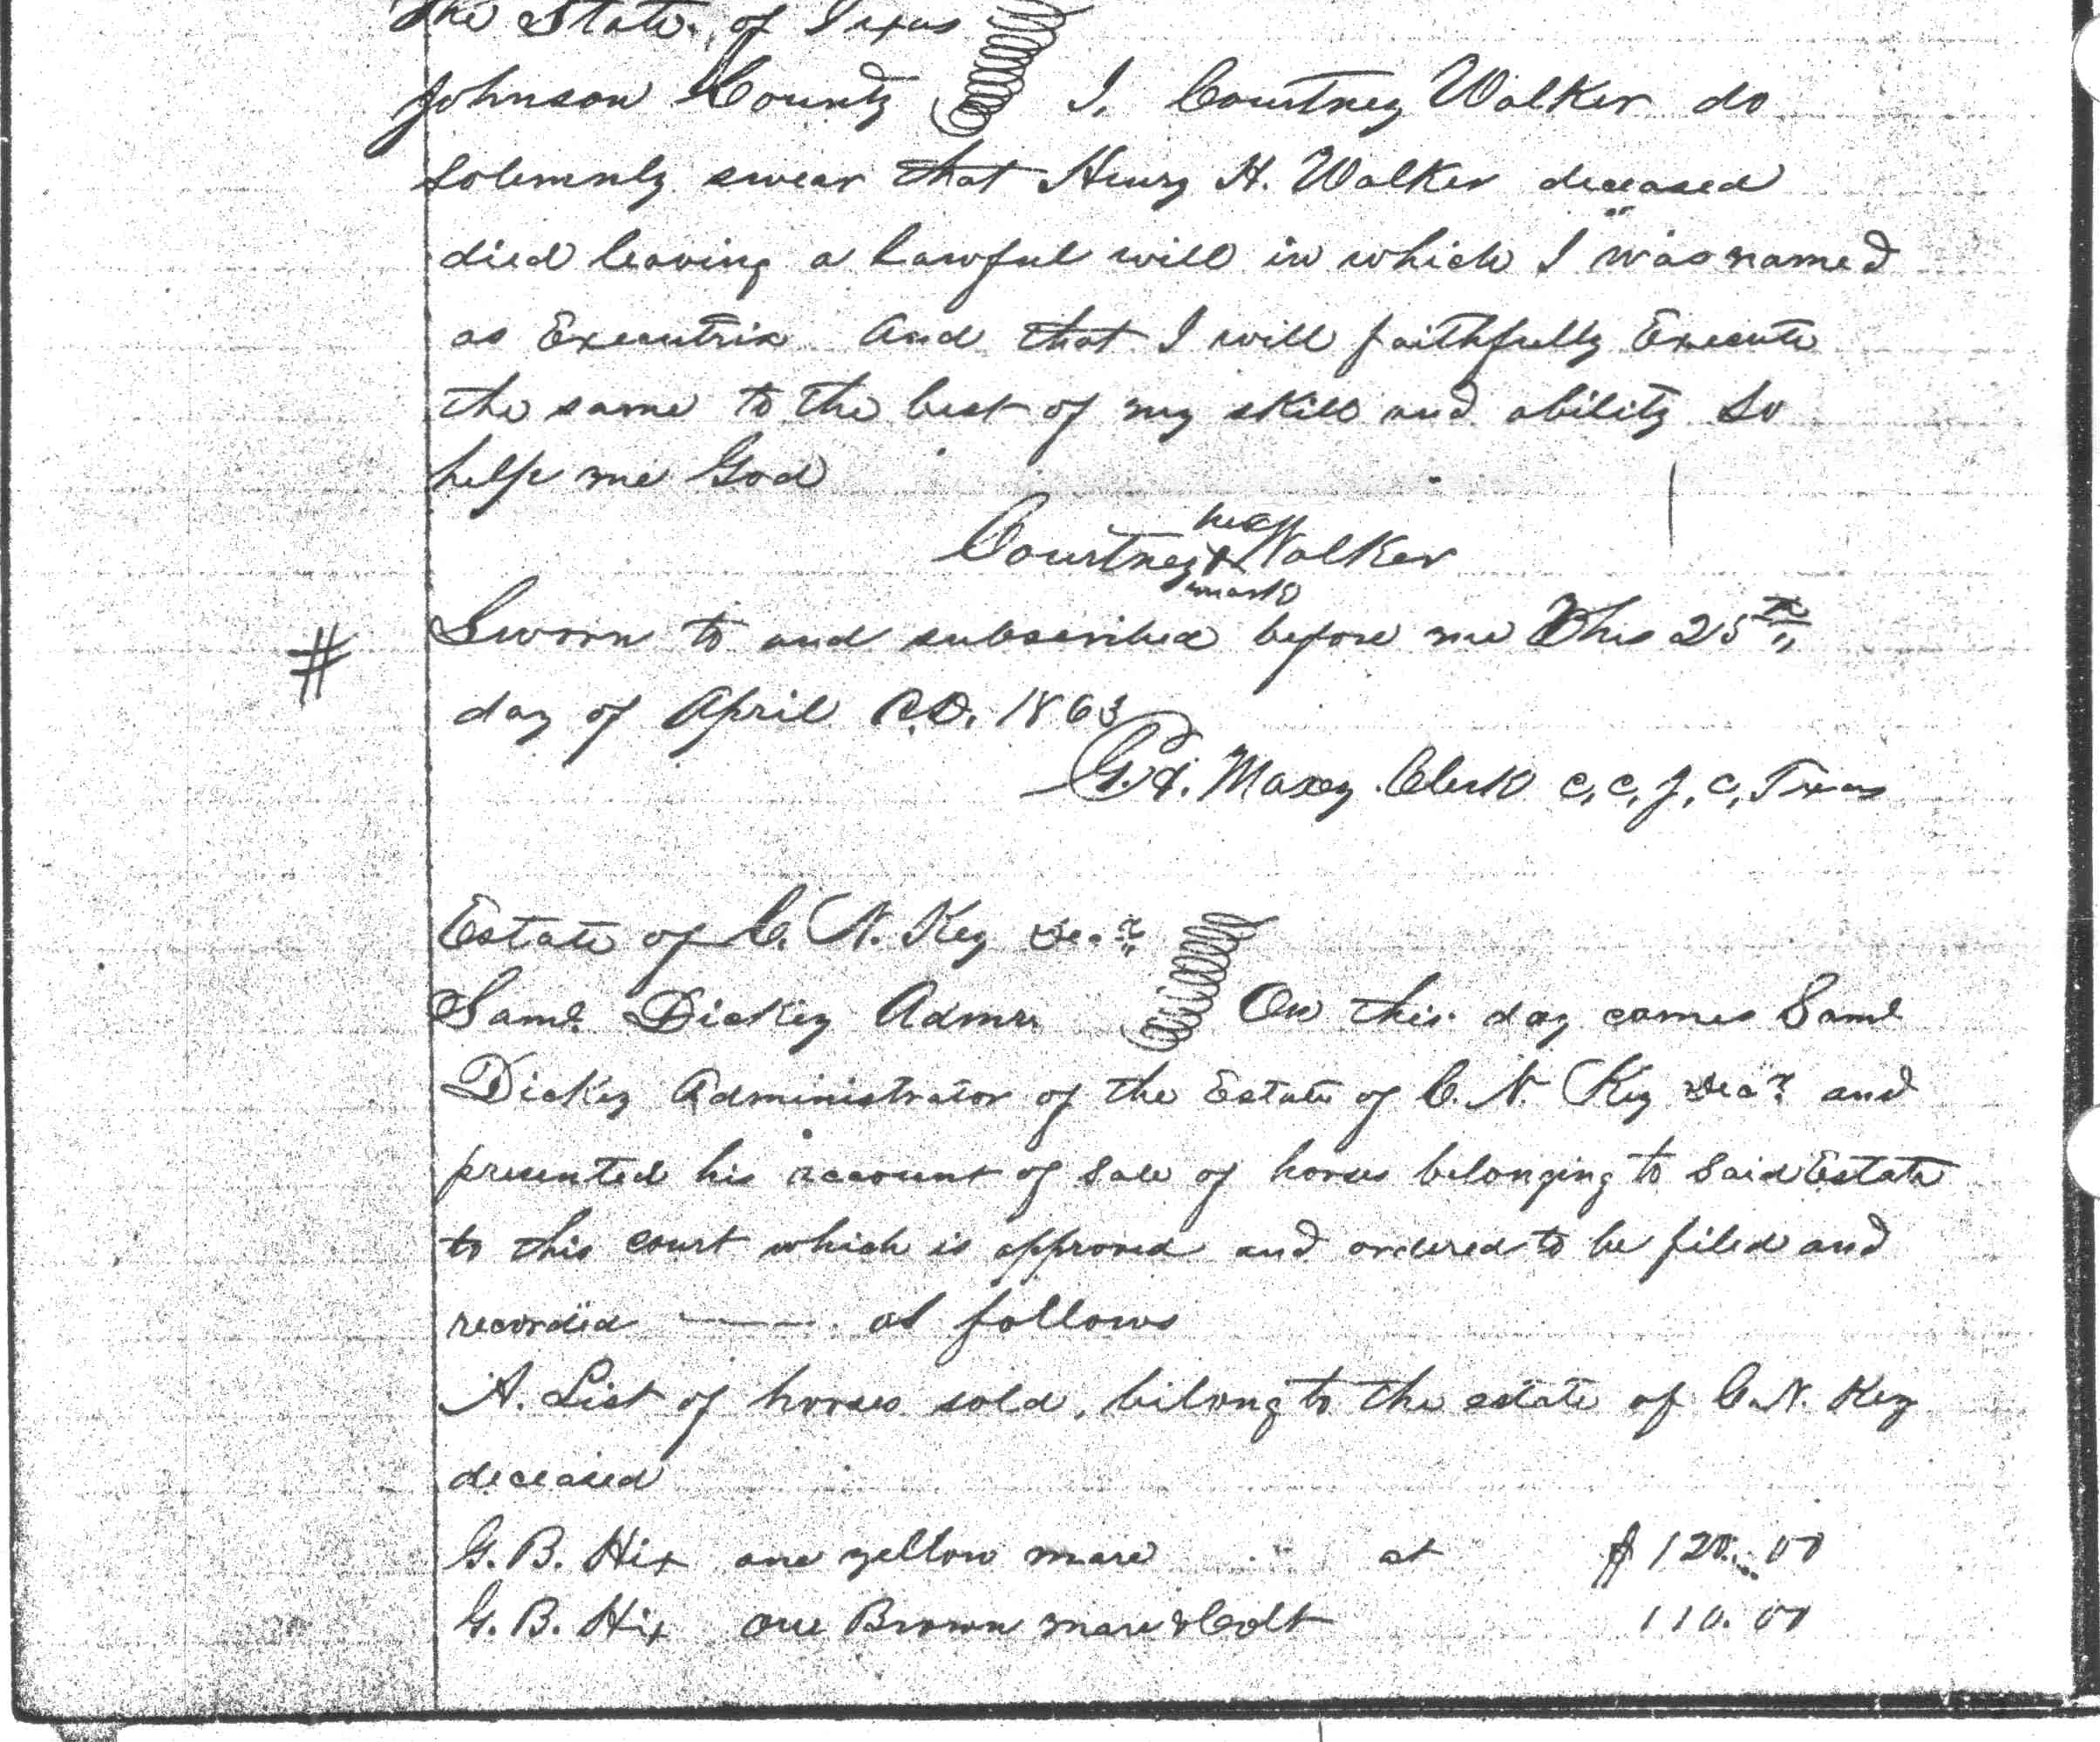 The State of Texas
Johnson County I, Courtney Walker do
solemnly swear that Henry H. Walker deceased
died leaving a lawful will in which I was named
as Executrix and that I will faithfully Execute
the same to the best of my skill and ability So
help me God
her
Courtney X Walker
mark
Sworn to and subscribed before me This 25th
day of April A.D. 1863
# 
Maxey Clerk C, C, J, C, Texas
Estate of C. N. Key Decd
Saml Dickey Admr On this day comes Saml
Dickey Administrator of the Estate of C. N. Key Decd and
presented his account of Sale of horses belonging to Said Estate
to this court which is approved and ordered to be filed and
recorded —— as follows
A. List of horses sold, belong to the estate of C. N. Key
deceased
G. B. Hix one yellow mare at $ 120.00
G. B. Hix one Brown mare & Colt 110.00